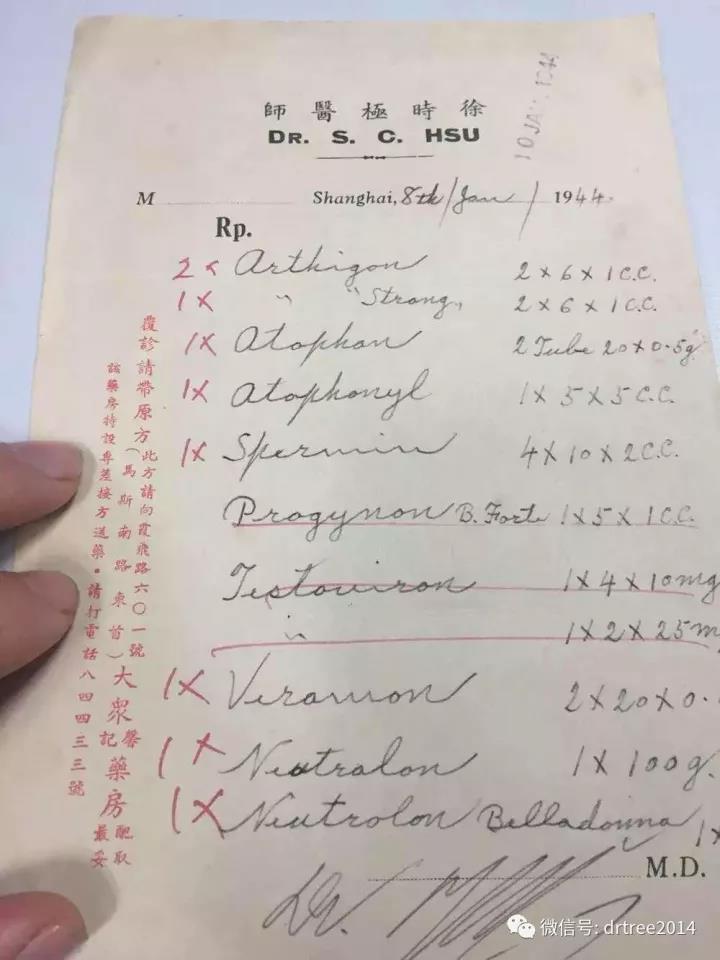 10 JAN. 1944
徐時極醫師
DR. S. C. HSU
M Shanghai, 8th/Jan/1944.
Rp.
2 x Arthigon 2 x 6 x 1 C.C.
1 x " "Strong" 2 x 6 x 1 C.C.
1 x Atophan 2 Tube 20 x 0.5g
1 x Atophanyl 1 x 5 x 5 C.C.
1 x Spermin 4 x 10 x 2 C.C.
Progynon B. Forte 1 x 5 x 1 C.C.
Testoviron 1 x 4 x 10 mg
" 1 x 2 x 25 m
1 x Veramon 2 x 20 x 0.
1 x Neutralon 1 x 100g.
1 x Neutrolon Belladonna 1x
M.D.
Dr.
覆診請帶原方
此方請向霞飛路六〇一號
(馬斯南路東首)
大眾藥房
馨記
配取最妥
該藥房特設專差接方送藥。請打電話八四四三三號
微信号: drtree2014